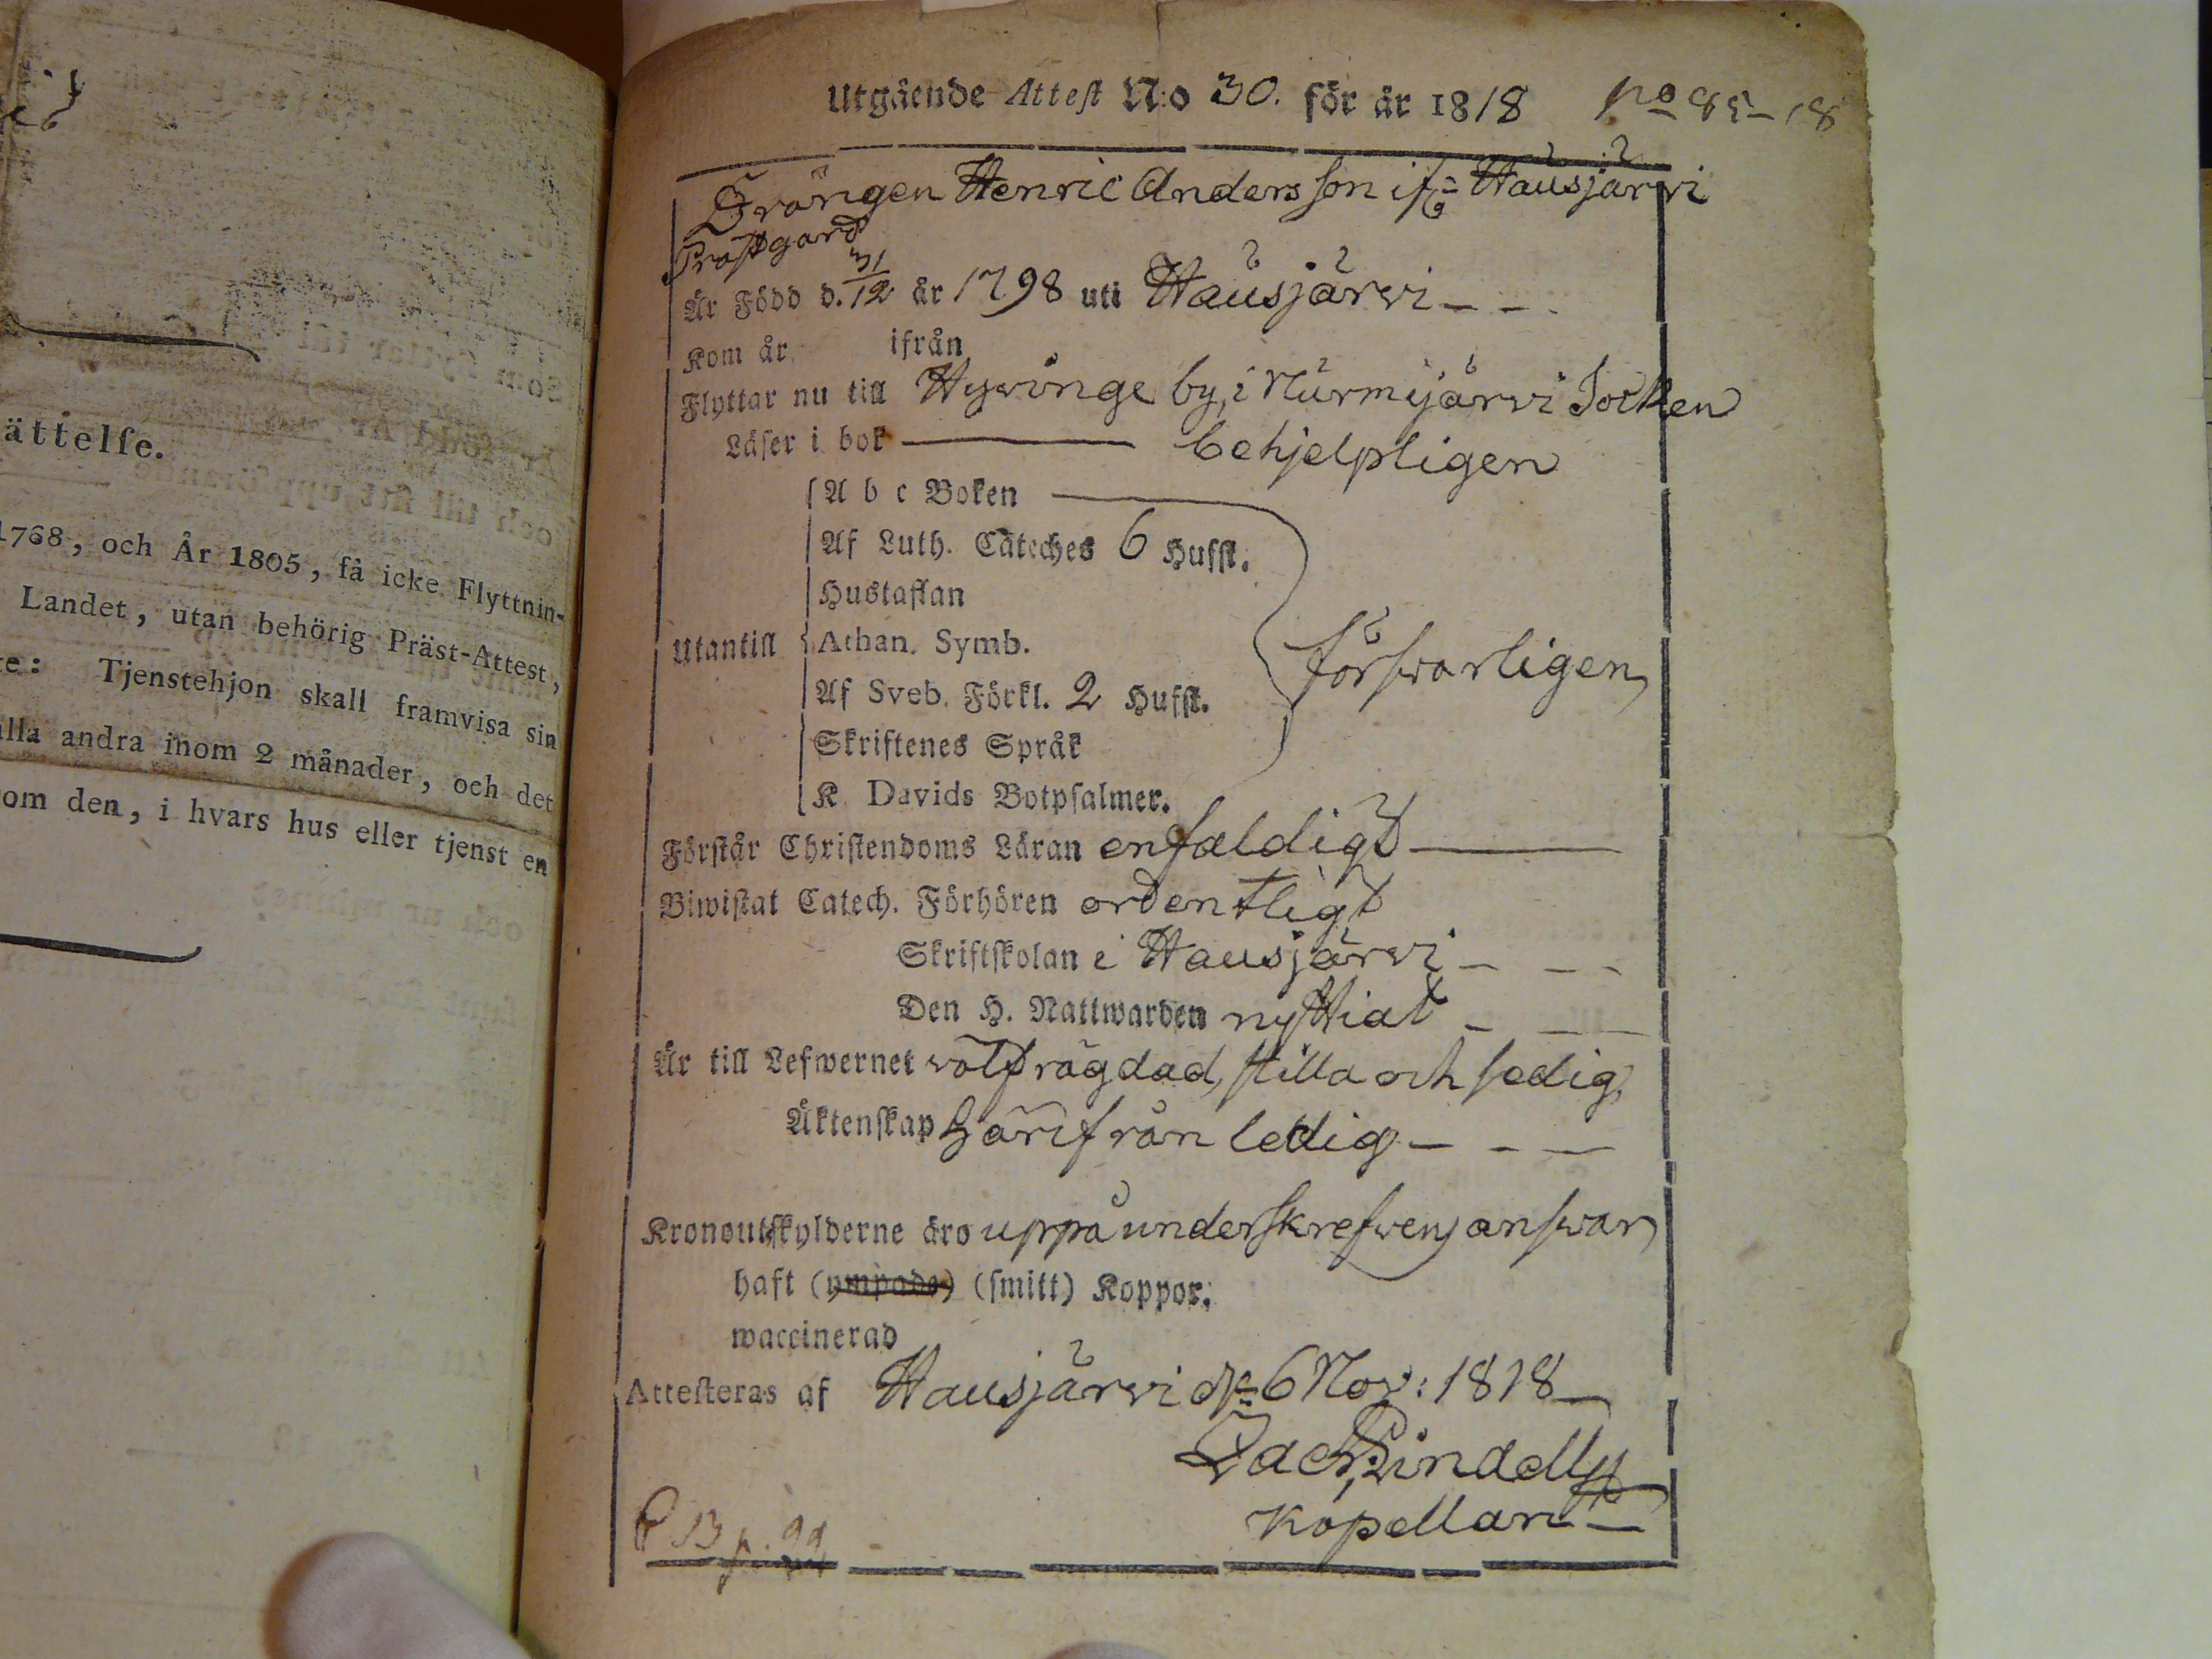 ättelse.
1768, och År 1805, få icke Flyttnin-
Landet, utan behörig Präst-Attest,
Tjenstehjon skall framvisa sin
alla andra inom 2 månader, och det
om den, i hvars hus eller tjenst en
Utgående Attest N:o 30. för år 1818 No 85-18
Drängen Henric Andersson ifr: Hausjärvi
Prostgård
Är Född d. 31/12 år 1798 uti Hausjärvi - -
Kom år ifrån
Flyttar nu till Hywinge by, i Nurmijärvi Socken
Läser i bok behjelpligen
A b c Boken
Af Luth. Cateches 6 Hufst.
Hustaflan
Utantill Athan. Symb. försvarligen
Af Sveb. Förkl. 2 Hufst.
Skriftenes Språk
K Davids Botpsalmer.
Förstår Christendoms Läran enfaldigt
Biwistat Catech. Förhören ordentligt
Skriftskolan i Hausjärvi - - -
Den H. Nattwarden nyttiat - -
Är till Lefwernet välfrägdad, stilla och sedig,
Äktenskap härifrån ledig - - -
Kronoutskylderne äro uppå underskrefwens answar
haft (ympade) (smitt) Koppor.
waccinerad
Attesteras af Hausjärvi d: 6 Nov: 1818
Zach. Lindell
Kapellan
P 13 p. 99